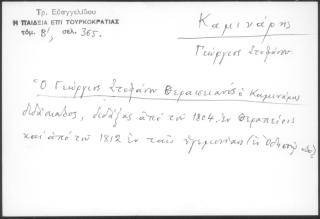 Τρ. Εὐαγγελίδου
Η ΠΑΙΔΕΙΑ ΕΠΙ ΤΟΥΡΚΟΚΡΑΤΙΑΣ
τόμ. Β', σελ. 365.
Καμινάρης
Γεώργιος Στεφάνου
Ὁ Γεώργιος Στεφάνου Θεραπειανὸς ὁ Καμινάρης
διδάσκαλος, διδάξας ἀπὸ τοῦ 1804 ἐν Θεραπείοις
καὶ ἀπὸ τοῦ 1812 ἐν ταῖς ἡγεμονίαις (ἐν Ὀδησσῷ